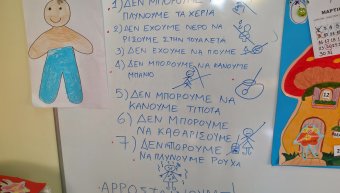 1) ΔΕΝ ΜΠΟΡΟΥΜΕ ΝΑ
ΠΛΥΝΟΥΜΕ ΤΑ ΧΕΡΙΑ
2) ΔΕΝ ΕΧΟΥΜΕ ΝΕΡΟ ΝΑ
ΡΙΞΟΥΜΕ ΣΤΗΝ ΤΟΥΑΛΕΤΑ
3) ΔΕΝ ΕΧΟΥΜΕ ΝΑ ΠΙΟΥΜΕ
4) ΔΕΝ ΜΠΟΡΟΥΜΕ ΝΑ ΚΑΝΟΥΜΕ
ΜΠΑΝΙΟ
5) ΔΕΝ ΜΠΟΡΟΥΜΕ ΝΑ
ΚΑΝΟΥΜΕ ΤΙΠΟΤΑ
6) ΔΕΝ ΜΠΟΡΟΥΜΕ
ΝΑ ΚΑΘΑΡΙΣΟΥΜΕ
7) ΔΕΝ ΜΠΟΡΟΥΜΕ
ΝΑ ΠΛΥΝΟΥΜΕ ΡΟΥΧΑ
ΜΑΡΤΙ
12